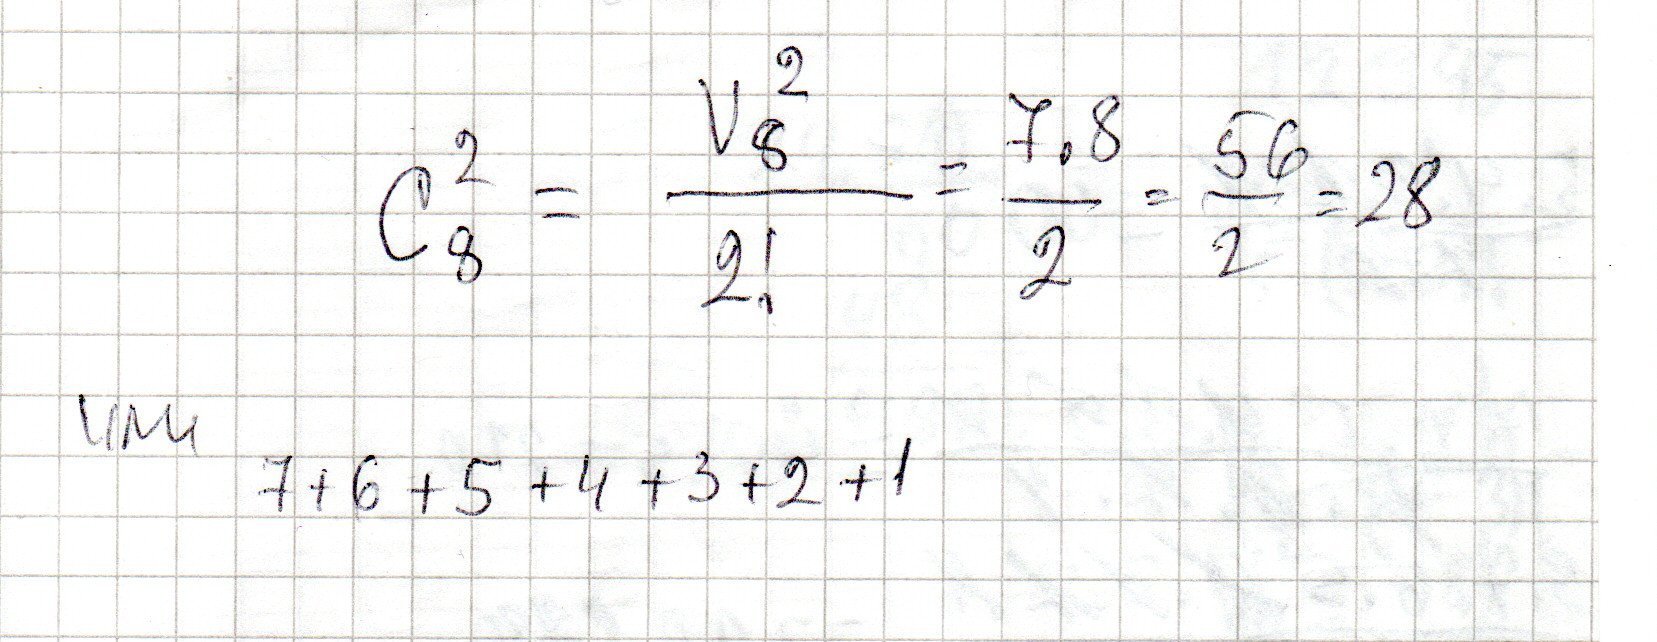 C₈² = V₈² / 2! = 7.8 / 2 = 56 / 2 = 28
или
7+6+5+4+3+2+1